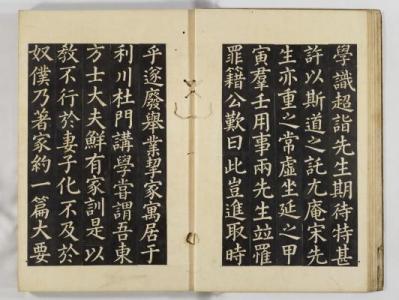 學識超詣先生期待特甚
許以斯道之託尤庵宋先
生亦重之常虛坐延之甲
寅羣壬用事兩先生竝罹
罪籍公歎曰此豈進取時
乎遂廢舉業挈家寓居于
利川杜門講學嘗謂吾東
方士大夫鮮有家訓是以
敎不行於妻子化不及於
奴僕乃著家約一篇大要